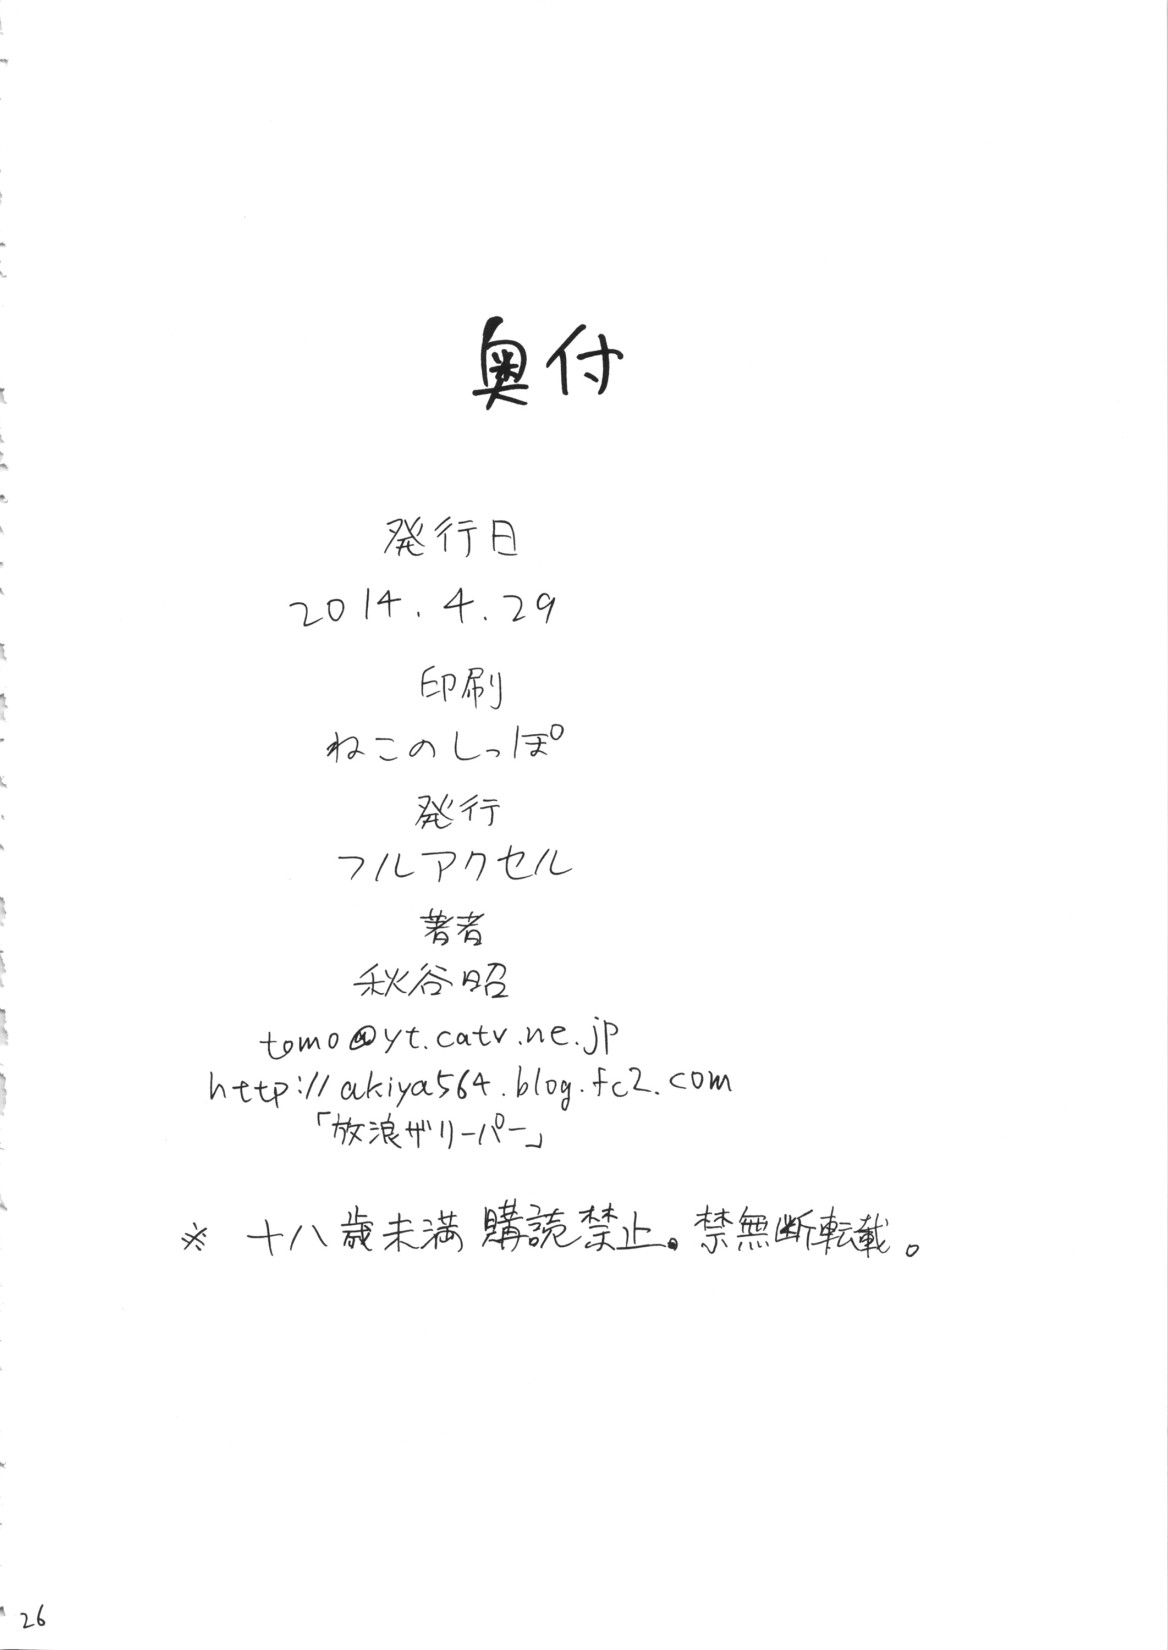 奥付
発行日
2014.4.29
印刷
ねこのしっぽ
発行
フルアクセル
著者
秋谷昭
tomo@yt.catv.ne.jp
http://akiya564.blog.fc2.com
「放浪ザリーパー」
※ 十八歳未満 購読禁止。禁無断転載。
26